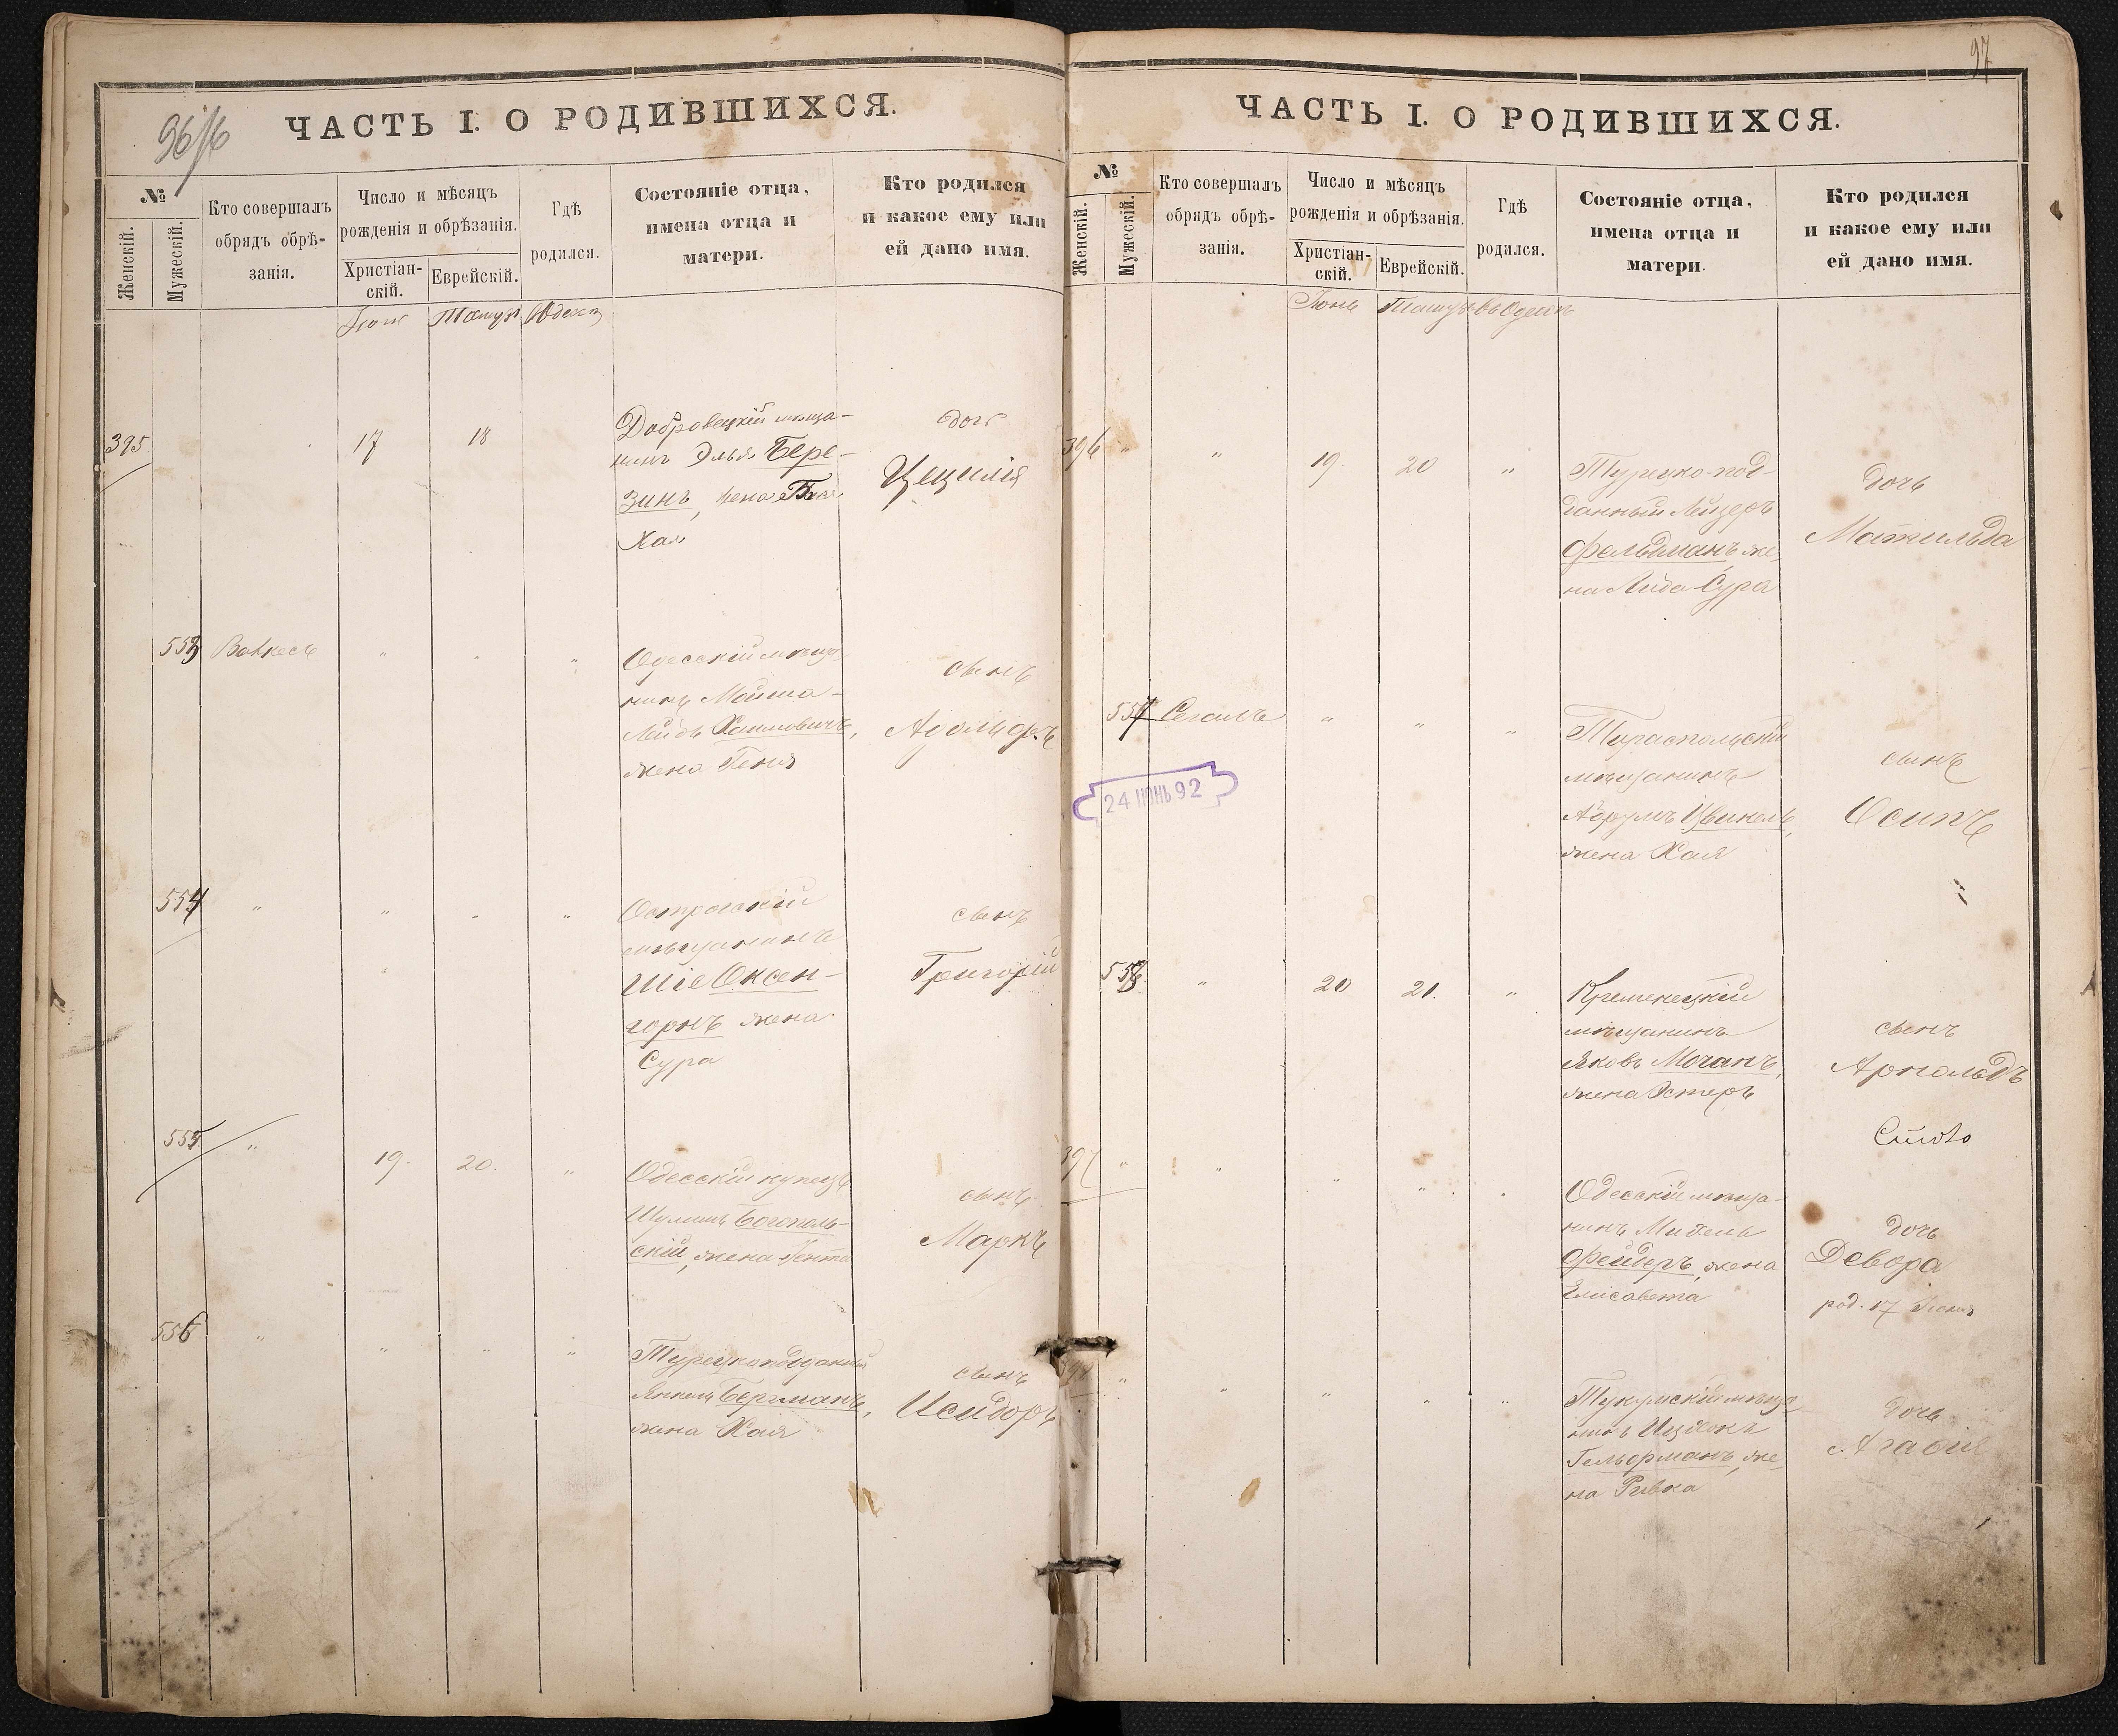 96/б
ЧАСТЬ I. О РОДИВШИХСЯ.
№
Женскій.
Мужескій.
Кто совершалъ
обрядъ обрѣ-
занія.
Число и мѣсяцъ
рожденія и обрѣзанія.
Христіан-
скій.
Еврейскій.
Гдѣ
родился.
Состояніе отца,
имена отца и
матери.
Кто родился
и какое ему или
ей дано имя.
395 17 18
мѣща-
нинъ Эльья Бере-
зинъ, жена
Хая
дочь
Цецилія
553 " " "
Одесскій мѣща
нинъ Мойша-
Лейбъ Хаимовичъ,
жена Геня
сынъ
Адольфъ
554 " " " "
Острогскій
мѣщанинъ
Шіе Оксен-
горнъ жена
Сура
сынъ
Григорій
555 " 19. 20. "
Одесскій купецъ
Богополь-
скій, жена
сынъ
Маркъ
556 " " " "
Турецкоподданый
Янкель Бергманъ,
жена Хая
сынъ
Исидоръ
97
ЧАСТЬ I. О РОДИВШИХСЯ.
№
Женскій.
Мужескій.
Кто совершалъ
обрядъ обрѣ-
занія.
Число и мѣсяцъ
рожденія и обрѣзанія.
Христіан-
скій.
Еврейскій.
Гдѣ
родился.
Состояніе отца,
имена отца и
матери.
Кто родился
и какое ему или
ей дано имя.
Іюнь Тамузъ
396 " " 19. 20 "
Турецко-под-
данный Лейзеръ
Фельдманъ же
на Сура
дочь
Матильда
557 Сегалъ " " "
Тираспольскій
мѣщанинъ
Абрумъ Цвикель,
жена Хая
сынъ
Осипъ
24 ІЮНЬ 92
558 " 20 21. "
Кременецкій
мѣщанинъ
Яковъ Мочанъ,
жена Эстеръ
сынъ
Арнольдъ
397 " " " " "
Одесскій мѣща-
нинъ
Фейдеръ, жена
Елисавета
дочь
Девора
род. 17 Іюня
" " " " "
Гельфманъ, же
на Ривка
дочь